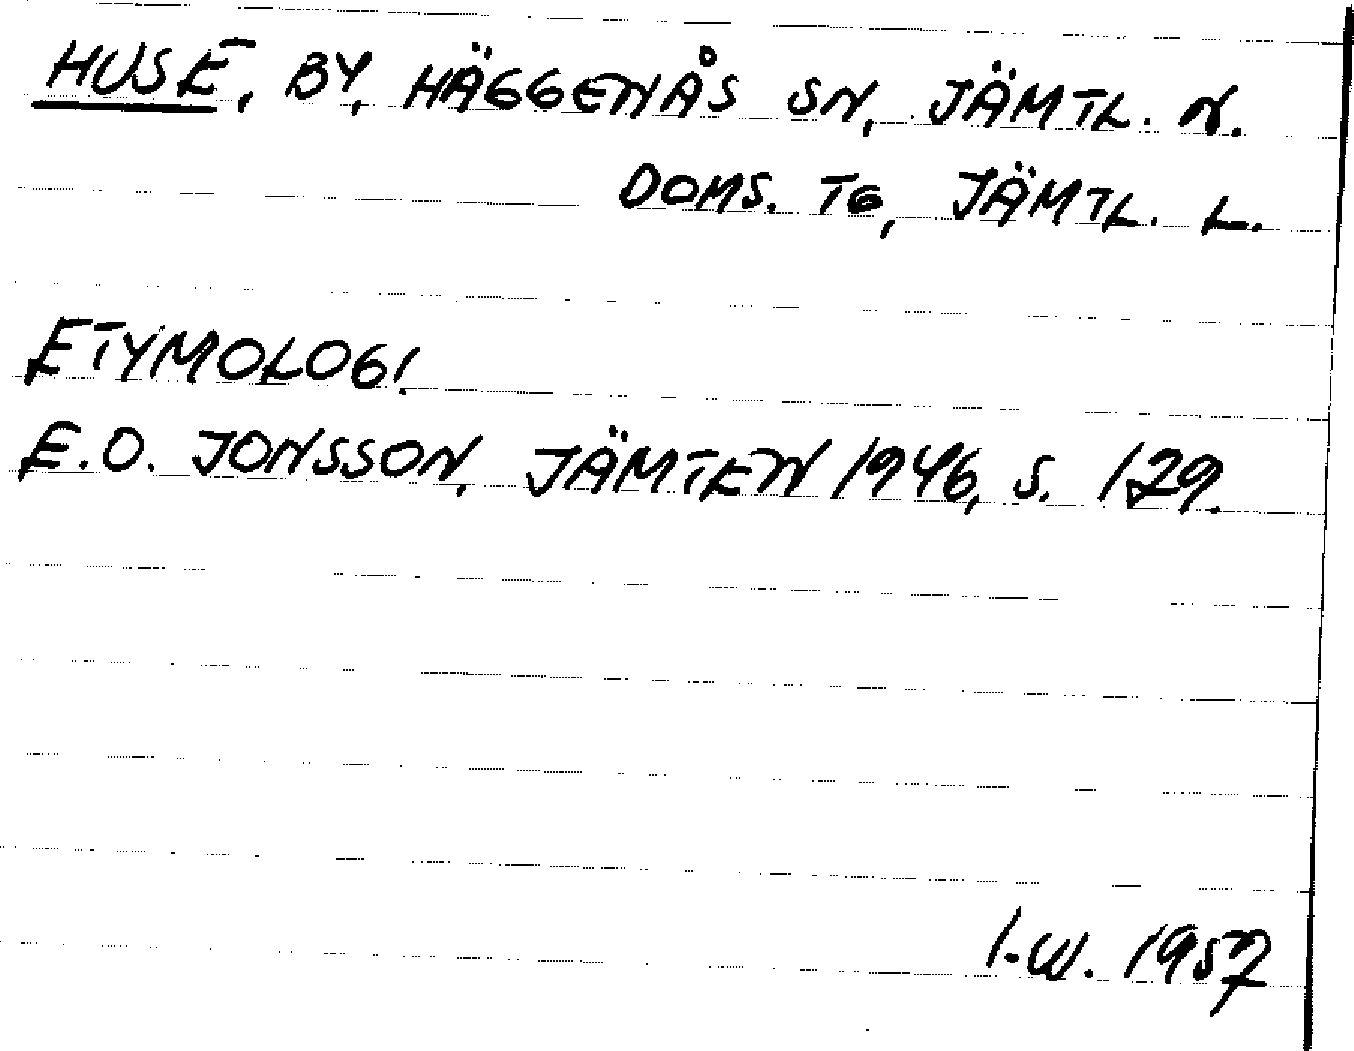 HUSE, BY, HÄGGENÅS SN, JÄMTL. N.
DOMS. TG, JÄMTL. L.
ETYMOLOGI.
E.O. JONSSON, JÄMTEN 1946, S. 129.
I.W. 1957